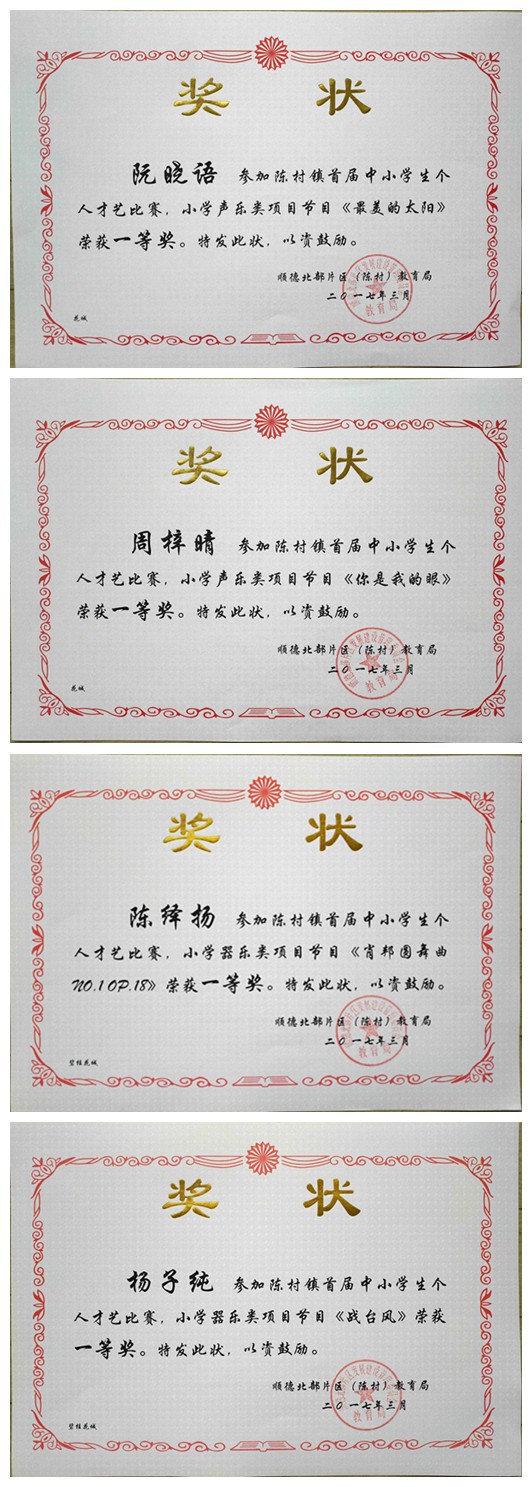 奖 状
阮晓语 参加陈村镇首届中小学生个
人才艺比赛，小学声乐类项目节目《最美的太阳》
荣获一等奖。特发此状，以资鼓励。
顺德北部片区（陈村）教育局
二0一七年三月
教育局
花城
奖 状
周梓晴 参加陈村镇首届中小学生个
人才艺比赛，小学声乐类项目节目《你是我的眼》
荣获一等奖。特发此状，以资鼓励。
顺德北部片区（陈村）教育局
二0一七年三月
教育局
花城
奖 状
陈绎扬 参加陈村镇首届中小学生个
人才艺比赛，小学器乐类项目节目《肖邦圆舞曲
NO.1 OP.18》荣获一等奖。特发此状，以资鼓励。
顺德北部片区（陈村）教育局
二0一七年三月
教育局
碧桂花城
奖 状
杨子纯 参加陈村镇首届中小学生个
人才艺比赛，小学器乐类项目节目《战台风》荣获
一等奖。特发此状，以资鼓励。
顺德北部片区（陈村）教育局
二0一七年三月
教育局
碧桂花城